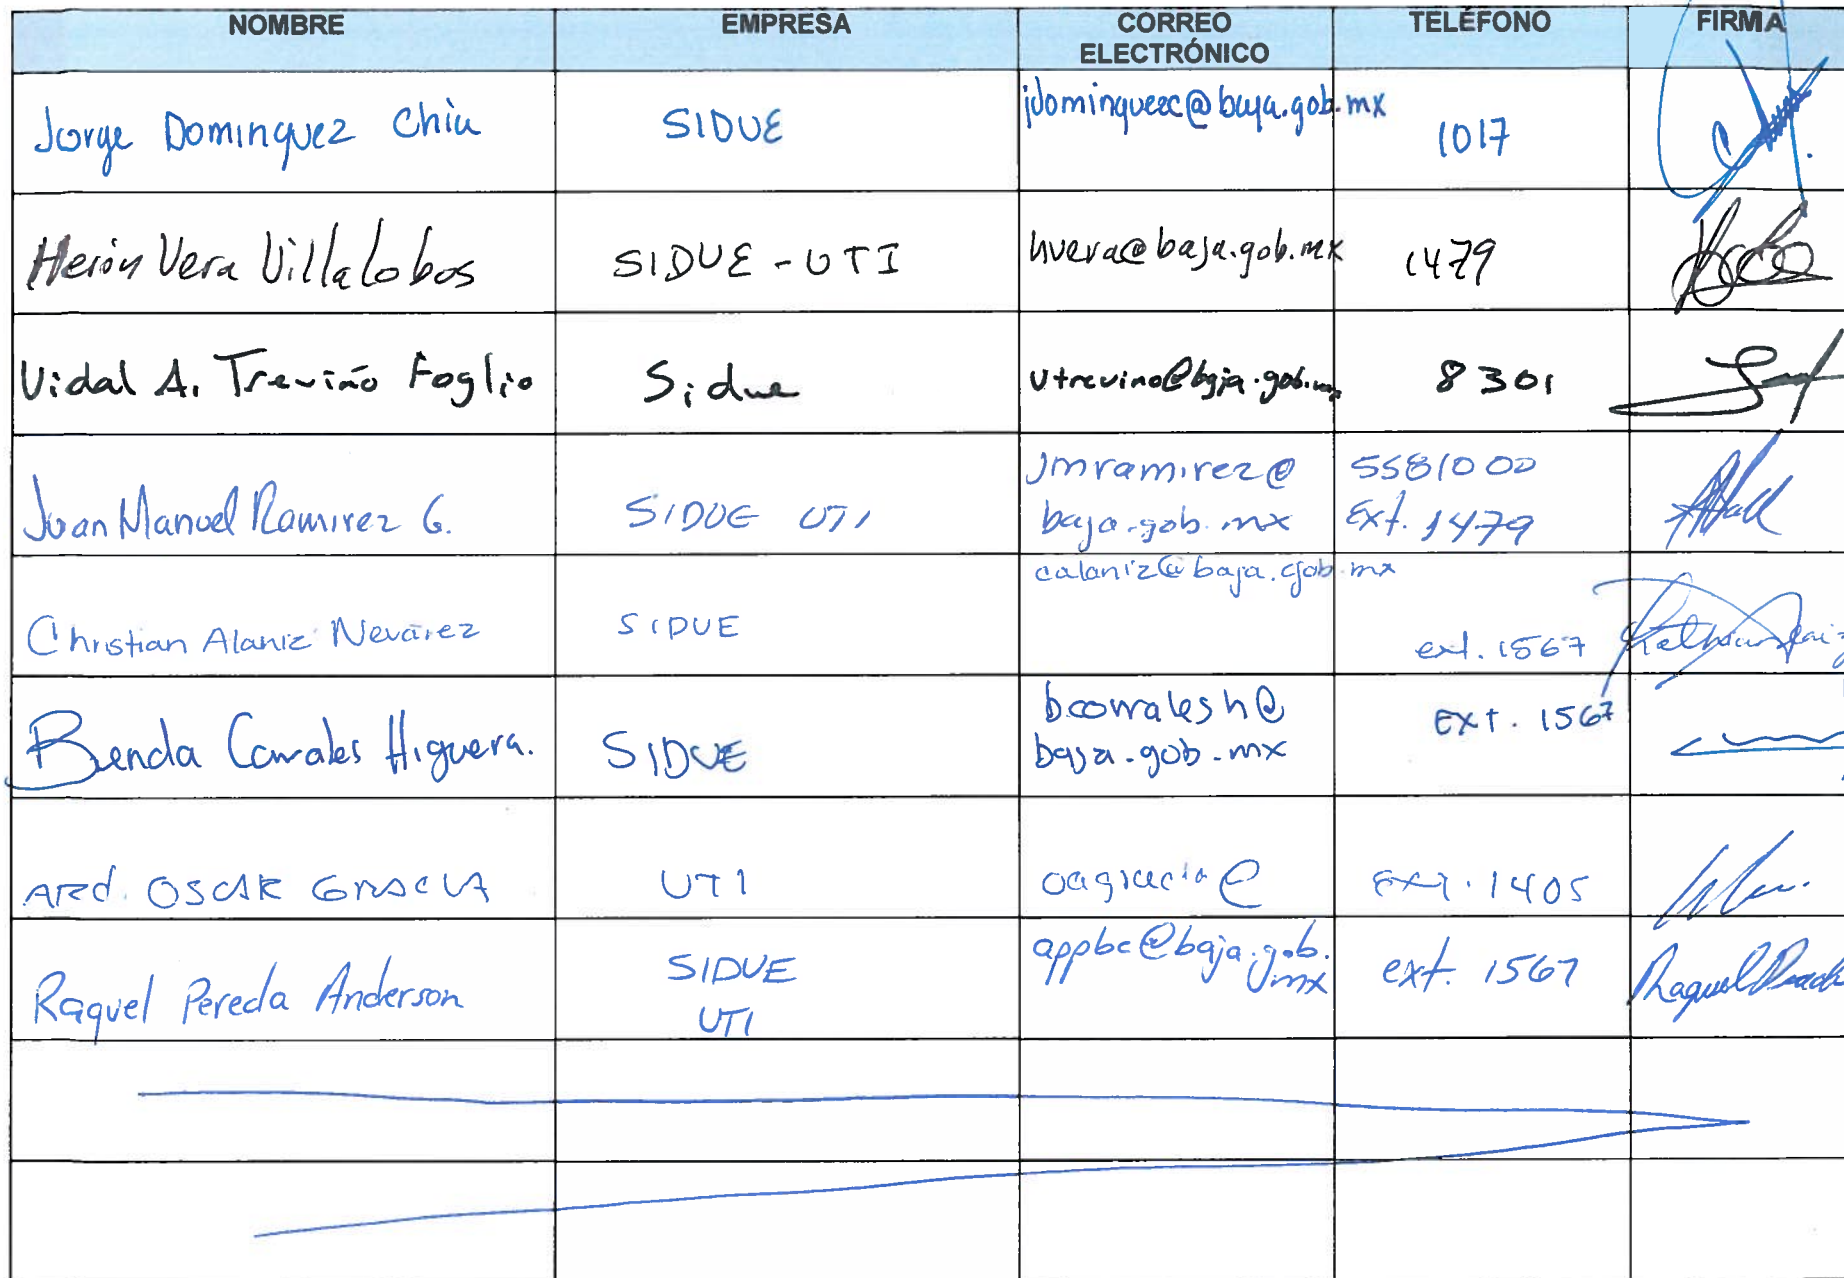 NOMBRE EMPRESA CORREO ELECTRÓNICO TELÉFONO FIRMA
Jorge Dominguez Chiu SIDUE jdominguezc@baja.gob.mx 1017
Herón Vera Villalobos SIDUE-UTI hvera@baja.gob.mx 1479
Vidal A. Treviño Foglio Sidue vtrevino@baja.gob.mx 8301
Juan Manuel Ramirez G. SIDUE UTI jmramirez@ 5581000
baja.gob.mx Ext. 1479
calaniz@baja.gob.mx
Christian Alaniz Nevárez SIDUE ext. 1567
Brenda Corrales Higuera. SIDUE bcorralesh@ Ext. 1567
baja.gob.mx
ARQ. OSCAR GRACIA UTI oagracia@ EXT. 1405
Raquel Pereda Anderson SIDUE appbc@baja.gob. ext. 1567
UTI mx